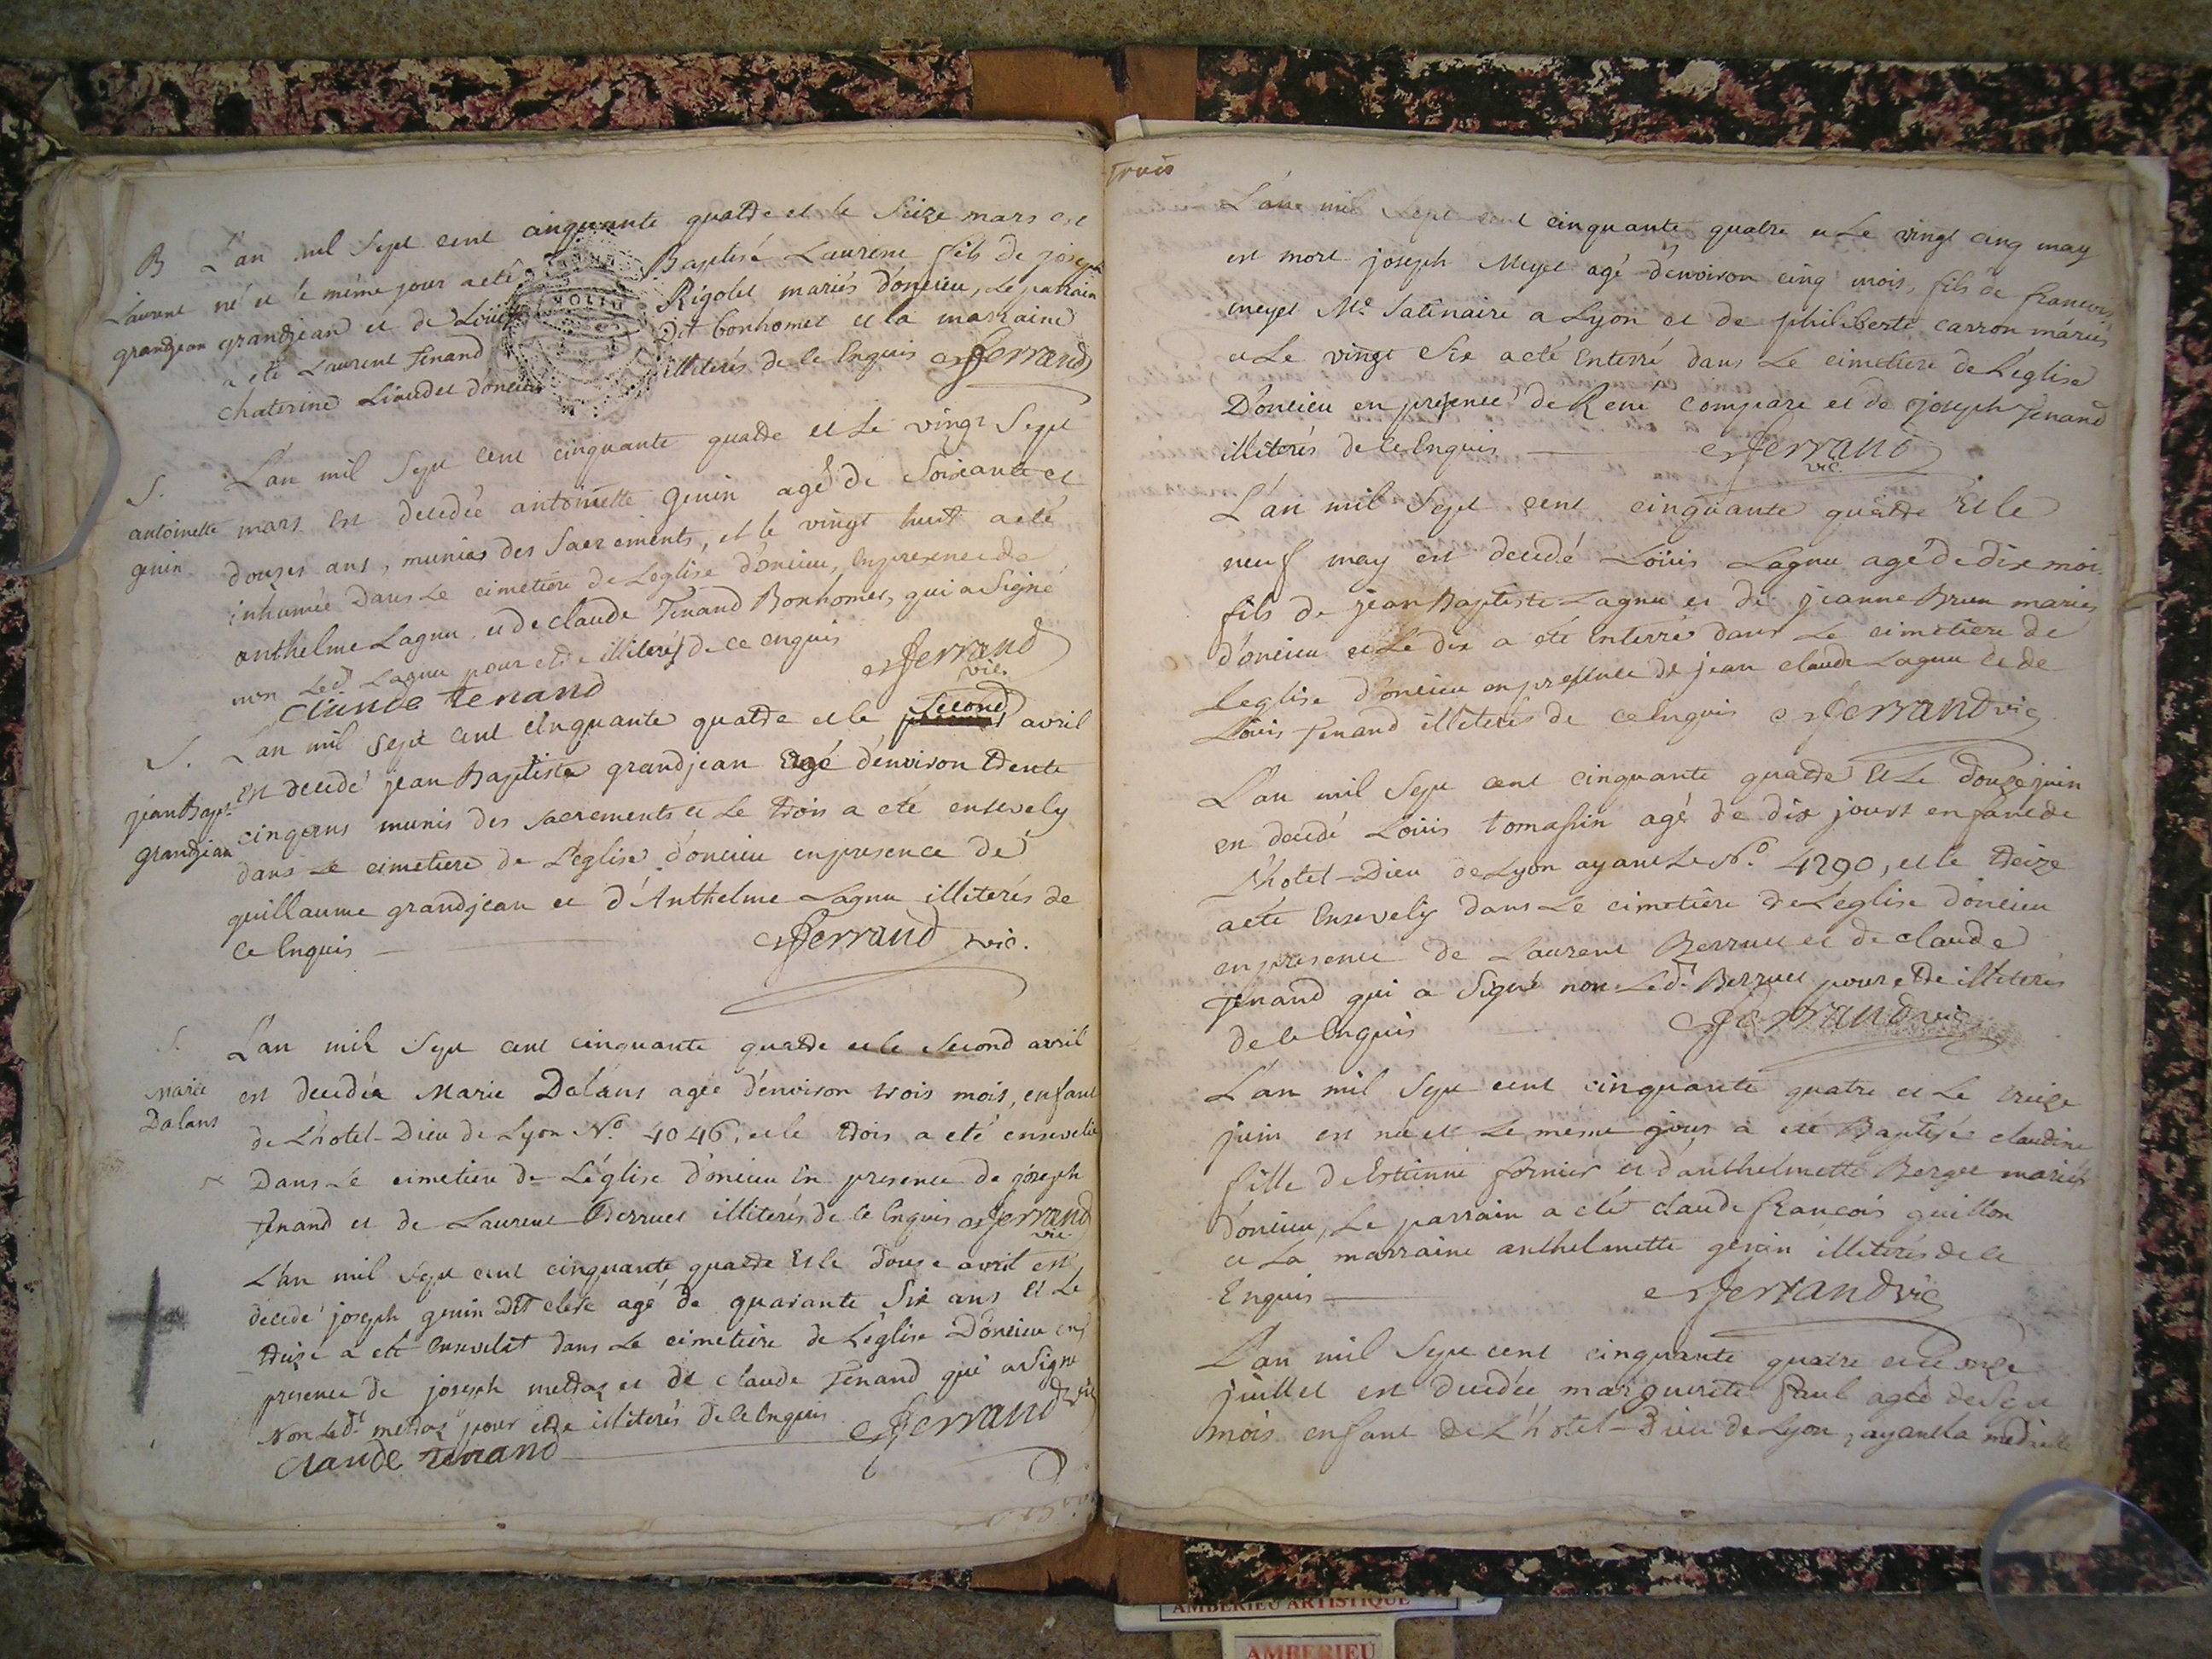 B L'an mil Sept cent cinquante quatre et le Seize mars est
Laurent né et le même jour a eté Baptisé Laurent fils de joseph
grandjean grandjean et de Louise Rigolet mariés d'oncieu, Le parrain
a eté Laurent Tenand Dit bonhomet et la marraine
Chaterine Lioudet d'oncieu illiterés de ce Enquis Ferrand
MOLIN
S. L'an mil Sept cent cinquante quatre et Le vingt Sept
antoinette mars est decedée antoinette genin agée de Soixante et
genin douzes ans, munies des Sacrements, et le vingt huit a eté
inhumée Dans Le cimetiére de Leglise d'oncieu, En presence de
anthelme Lagnu et de claude Tenand Bonhomet, qui a Signé
non Led. Lagnu pour etre illiterés de ce enquis Ferrand
vic.
claude tenand
S. L'an mil Sept cent cinquante quatre et le Second avril
jean Bapt. est decedé jean Baptiste grandjean agé d'environ trente
grandjean cinq ans munis des sacrements et Le trois a eté ensevely
dans Le cimetiere de L'eglise d'oncieu en presence de
guillaume grandjean et d'Anthelme Lagnu illiterés de
ce Enquis Ferrand vic.
S. L'an mil Sept cent cinquante quatre et le Second avril
Marie est decedée Marie Dalans agée d'environ trois mois, enfant
Dalans de L'hotel-Dieu de Lyon N.º 4046, et le trois a eté ensevelie
Dans Le cimetiere de L'église d'oncieu En presence de joseph
Tenand et de Laurent Berruet illiterés de ce Enquis Ferrand
vic.
L'an mil Sept cent cinquante quatre Et le douze avril est
decedé joseph genin Dit clerc agé de quarante Six ans Et Le
treize a eté Ensevelit dans Le cimetiére de L'église D'oncieu en
presence de joseph mettraz et de claude Tenand qui a Signé
Non Led.t mettraz pour etre illiterés de ce Enquis Ferrand vic
claude tenand
Trois
L'an mil Sept cent cinquante quatre et Le vingt cinq may
est mort joseph Meyet agé d'environ cinq mois, fils de francois
meyet M.e Satinaire a Lyon et de philiberte carron mariés
et Le vingt Six a eté Enterré dans Le cimetiere de L'église
D'oncieu en presence de René compare et de joseph Tenand
illiterés de ce Enquis Ferrand
vic
L'an mil Sept cent cinquante quatre Et le
neuf may est decedé Loüis Lagnu agé de dix moi
fils de jean Baptiste Lagnu et de jeanne Brun mariés
d'oncieu et Le dix a eté Enterré dans Le cimetiere de
Leglise d'oncieu en presence de jean claude Lagnu et de
Loüis Tenand illiterés de ce Enquis Ferrand vic
L'an mil Sept cent cinquante quatre Et Le douze juin
est decedé Loüis tomassin agé de dix jours enfant de
L'hotel-Dieu de Lyon ayant Le N.º 4290, et le treize
a eté Ensevely dans Le cimetiére de L'église d'oncieu
en presence de Laurent Berruet et de claude
Tenand qui a Signé non Led.t Berruet pour etre illiterés
de ce Enquis Ferrand vic
L'an mil Sept cent cinquante quatre et Le treize
juin est née et Le même jour a eté Baptisée claudine
fille d'Estienne fornier et d'anthelmette Berger mariés
d'oncieu, Le parrain a eté claude françois guillon
et La marraine anthelmette genin illiterés de ce
Enquis Ferrand vic
L'an mil Sept cent cinquante quatre et Le onze
juillet est decedée marguerite Paul agée de Sept
mois enfant de L'hotel-Dieu de Lyon, ayant la
AMBERIEU ARTISTIQUE
AMBERIEU